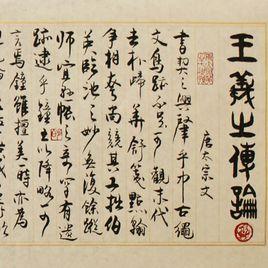 王羲之傳論
唐太宗文
書契之興肇乎中古繩
文鳥跡不足可觀末代
去朴歸華舒箋點翰
爭相夸尚競其工拙伯
英臨池之妙無復餘蹤
師宜懸帳之奇罕有遺
跡逮乎鐘王以降略可
言焉鐘雖擅美一時亦為